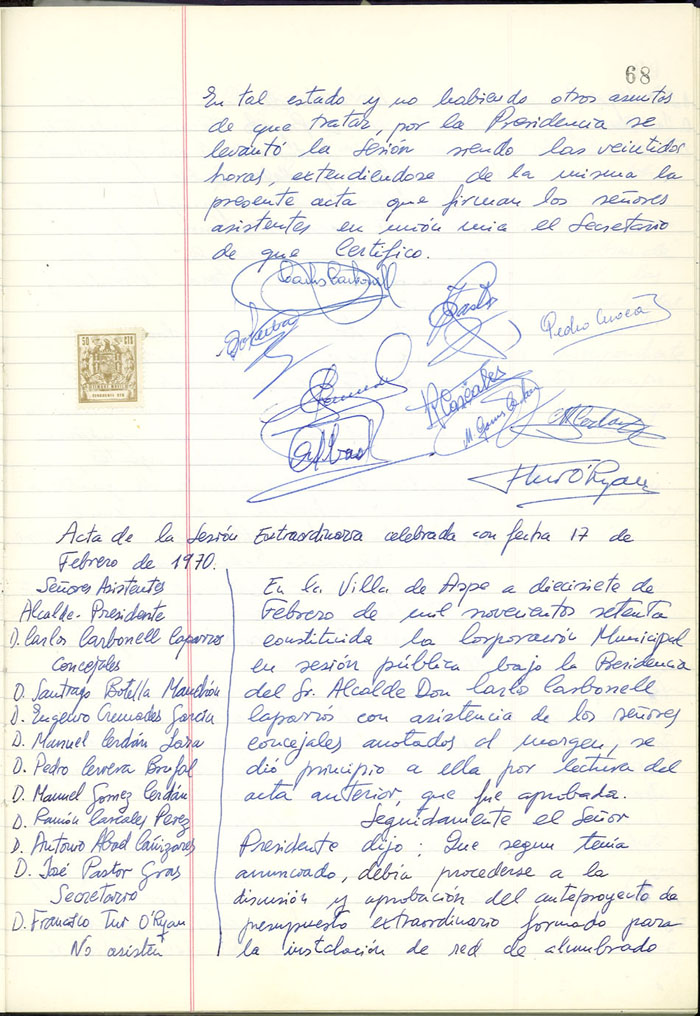 68
En tal estado y no habiendo otros asuntos
de que tratar, por la Presidencia se
levantó la Sesión siendo las veintidos
horas, extendiendose de la misma la
presente acta que firman los señores
asistentes en unión mia el Secretario
de que Certifico.
Carlos Carbonell
Pastor
Pedro
50 CTS
R Cascales
M. Gomez Cerdan
M Cerdan
A Abad
Tur O'Ryan
Acta de la Sesión Extraordinaria celebrada con fecha 17 de
Febrero de 1970.
Señores Asistentes
Alcalde-Presidente
D. Carlos Carbonell Caparros
Concejales
D. Santiago Botella Mandrón
D. Eugenio Cremades Garcia
D. Manuel Cerdán Jara
D. Pedro Cervera Brufal
D. Manuel Gomez Cerdán
D. Ramón Cascales Perez
D. Antonio Abad Cañizares
D. José Pastor Gras
Secretario
D. Francisco Tur O'Ryan
No asisten
En la Villa de Aspe a diecisiete de
Febrero de mil novecientos setenta
constituida la Corporación Municipal
en sesión pública bajo la Presidencia
del Sr. Alcalde Don Carlos Carbonell
Caparrós con asistencia de los señores
concejales anotados al margen, se
dió principio a ella por lectura del
acta anterior, que fue aprobada.
Seguidamente el Señor
Presidente dijo: Que segun tenia
anunciado, debia procederse a la
discusión y aprobación del anteproyecto de
presupuesto extraordinario formado para
la instalción de red de alumbrado